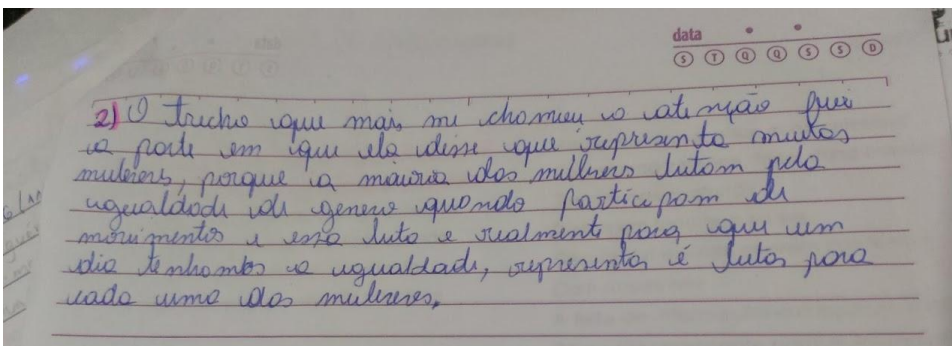 data
S T Q Q S S D
2) O trecho que mais me chamou a atenção foi
a parte em que ela disse que representa muitas
mulheres, porque a maioria das mulheres lutam pela
igualdade de genero quando participam de
movimentos e essa luta e realmente para que um
dia tenhamos a igualdade, representar é lutar para
cada uma das mulheres.